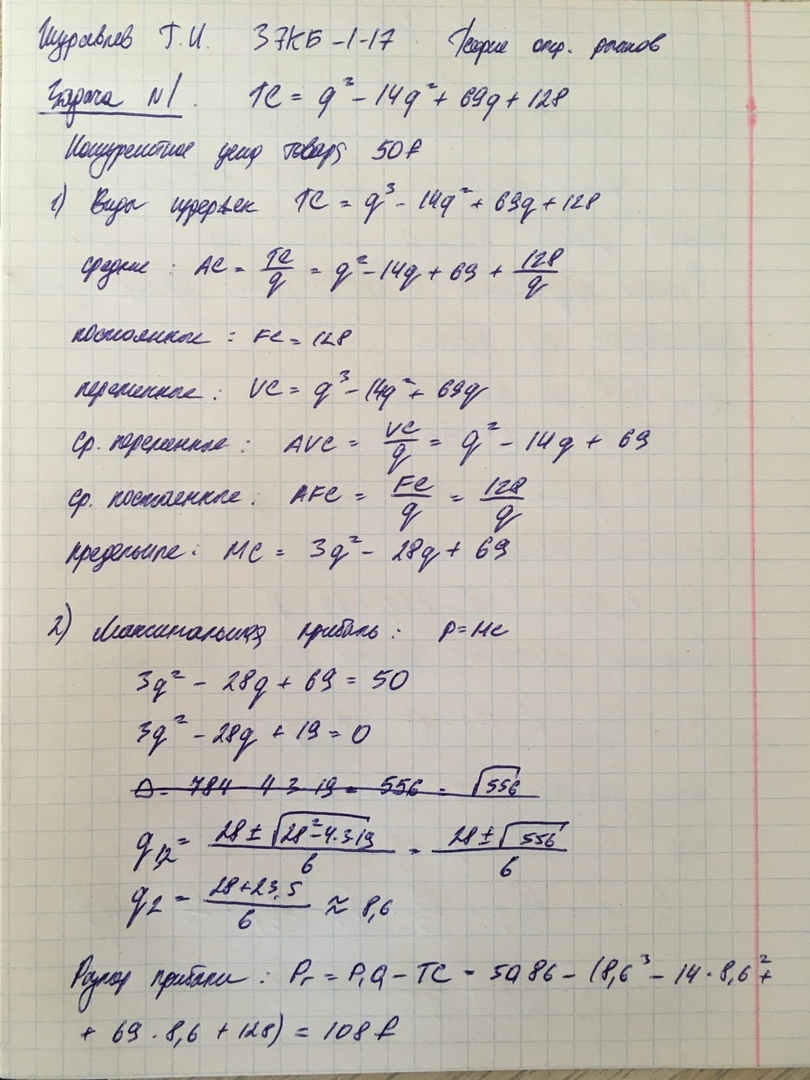 Журавлев Г.И. 37КБ-1-17 Теория отр. рынков
Задача №1. TC = q³ - 14q² + 69q + 128
Конкурентное цена товара 50 ₽
1) Виды издержек TC = q³ - 14q² + 69q + 128
средние : AC = TC/q = q² - 14q + 69 + 128/q
постоянные : FC = 128
переменные : VC = q³ - 14q² + 69q
Ср. переменные : AVC = VC/q = q² - 14q + 69
Ср. постоянные : AFC = FC/q = 128/q
предельные : MC = 3q² - 28q + 69
2) Максимальная прибыль : P = MC
3q² - 28q + 69 = 50
3q² - 28q + 19 = 0
D = 784 - 4·3·19 = 556 = √556
q₁,₂ = (28 ± √(28² - 4·3·19))/6 = (28 ± √556)/6
q₂ = (28 + 23,5)/6 ≈ 8,6
Размер прибыли : Pr = P·Q - TC = 50·8,6 - (8,6³ - 14·8,6² +
+ 69·8,6 + 128) = 108 ₽